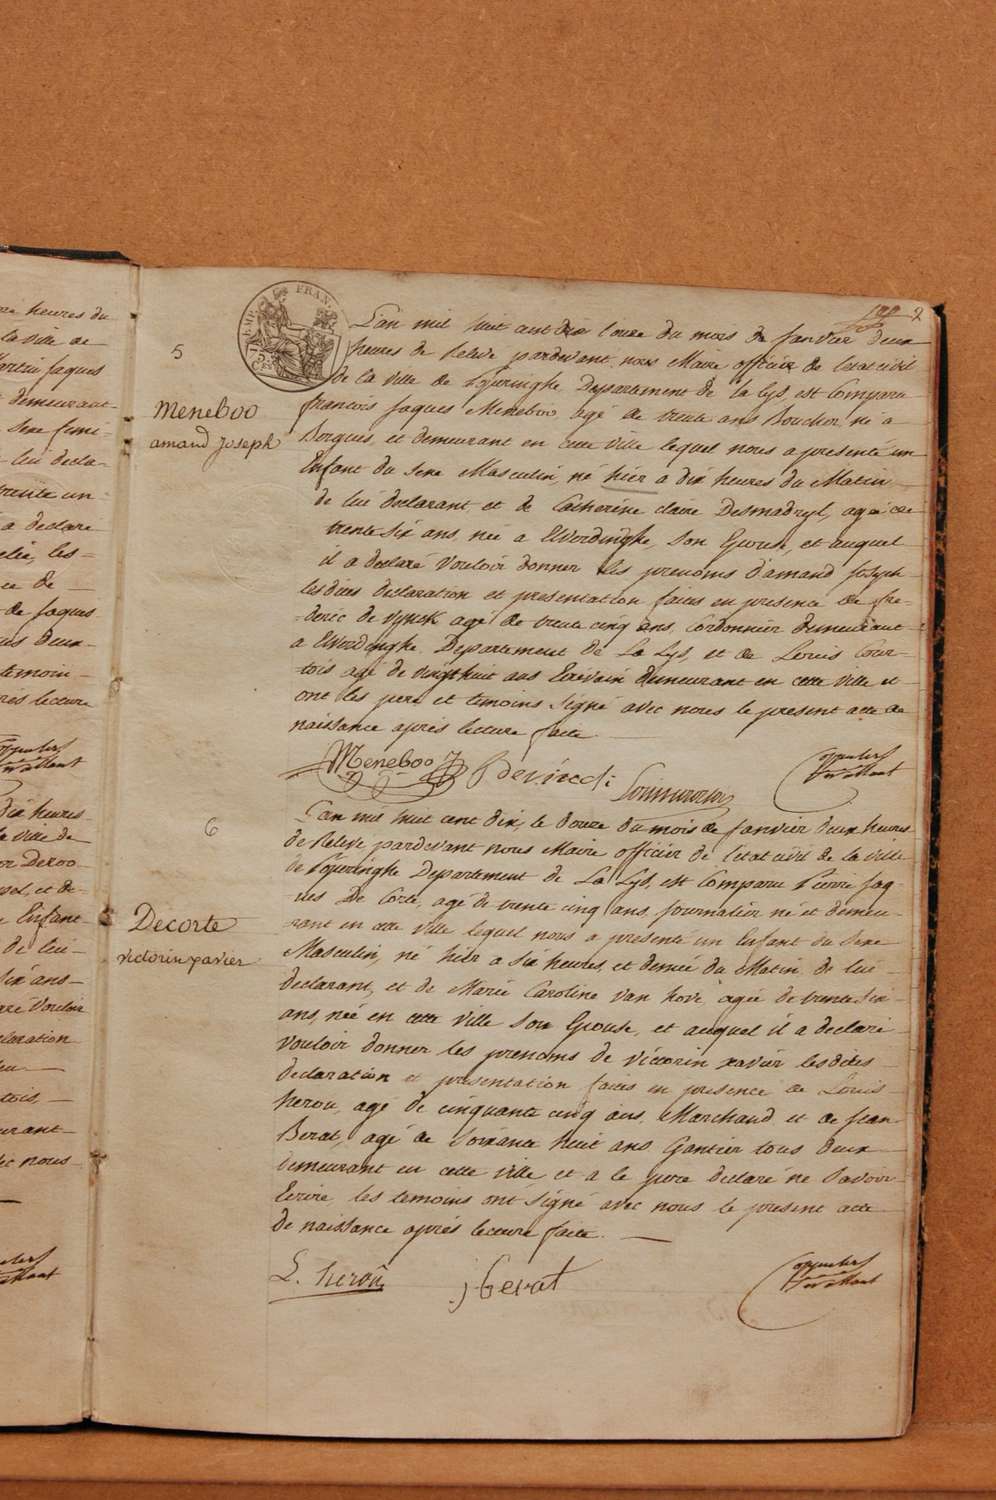 re heures du
la ville de
Martin Jaques
demeurant
Sexe femi-
lui decla-
trente un
a declare
les-
ce de
de Jaques
deux
temoin
rés lecture
dix heures
la ville de
or Deroo
et de-
Enfant
de lui-
six ans
are Vouloir
claration
tois,
urant
vec nous
2
TIMB. FRAN.
5
L'an mil huit cent dix l'onze du mois de Janvier deux
heures de Relevé pardevant nous Maire officier de l'etat civil
de la ville de Poperinghe Departement de la Lys, est Comparu
francois Jaques Meneboo, agé de trente ans Boucher, né a
Meneboo
amand Joseph
Bergues, et demeurant en cette ville lequel nous a presenté un
Enfant du sexe Masculin, né hier a dix heures du Matin
de lui declarant, et de Catherine Claire Desmadryl, agée de
trente six ans, née a Elverdinghe, Son Epouse, et auquel
il a declaré Vouloir donner les prenoms d'amand Joseph
lesdites declaration et presentation faites en presence de fre-
deric de agé de trente cinq ans, Cordonnier demeurant
a Elverdinghe Departement de La Lys, et de Louis Cour-
tois agé de vingt huit ans Ecrivain demeurant en cette ville et
ont les pere et temoins Signé avec nous le present acte de
naissance aprés lecture faite
Meneboo
6
L'an mil huit cent dix, le douze du mois de Janvier deux heures
de Relevé pardevant nous Maire officier de l'etat civil de la ville
de Poperinghe Departement de La Lys, est Comparu Pierre Jaq-
ues De Corte, agé de trente cinq ans, Journalier né et demeu-
Decorte
victorin xavier
rant en cette ville lequel nous a presenté un Enfant du Sexe
Masculin, né hier a six heures, et demie du Matin de lui
declarant, et de Marie Caroline van hove, agée de trente six
ans, née en cette ville Son Epouse, et auquel il a declaré
vouloir donner les prenoms de victorin xavier lesdites
declaration et presentation faites en presence de Louis
herou, agé de cinquante cinq ans, Marchand et de Jean
Berat, agé de Soixante huit ans Gantier tous deux
demeurant en cette ville, et a le pere declaré ne Savoir
Ecrire, les temoins ont Signé avec nous le present acte
de naissance aprés lecture faite.
L. herou j berat